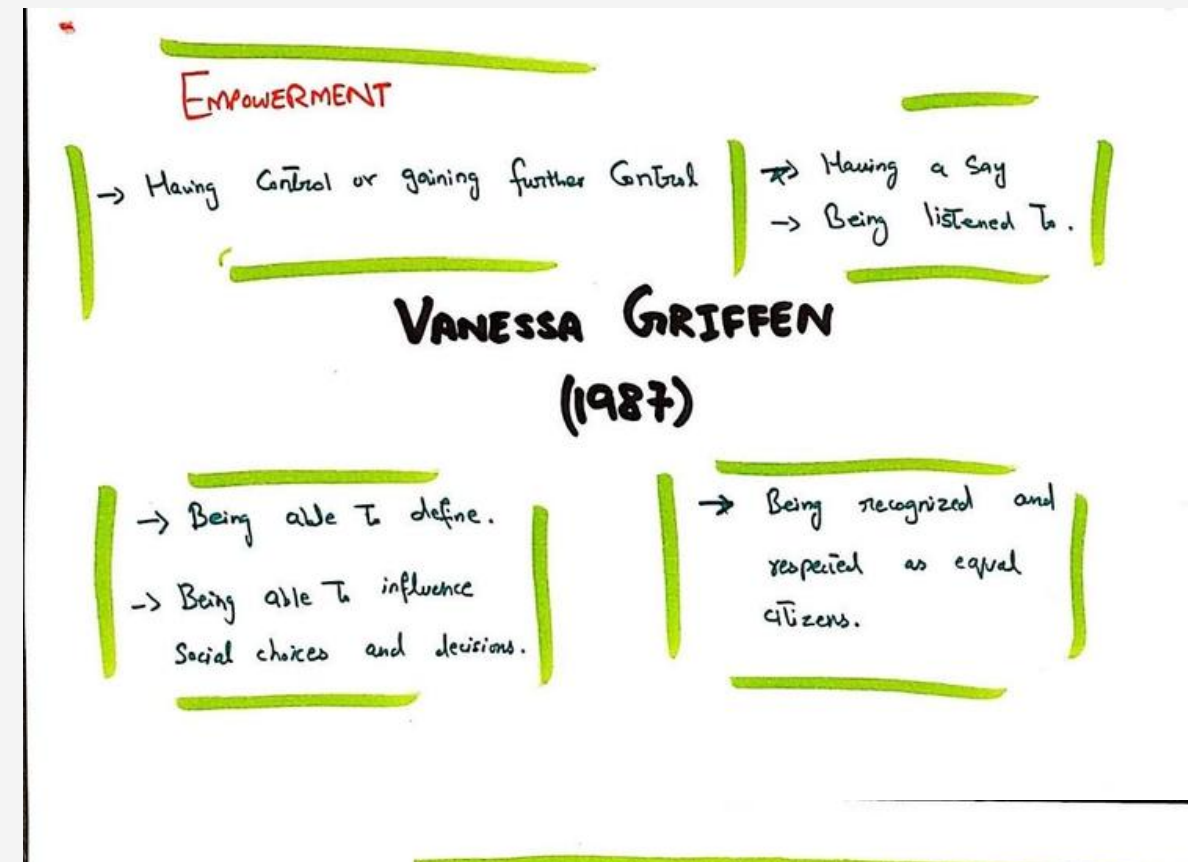 EMPOWERMENT
→ Having Control or gaining further Control
→ Having a Say
→ Being listened To.
VANESSA GRIFFEN
(1987)
→ Being able To define.
→ Being able To influence
Social choices and decisions.
→ Being recognized and
respected as equal
citizens.